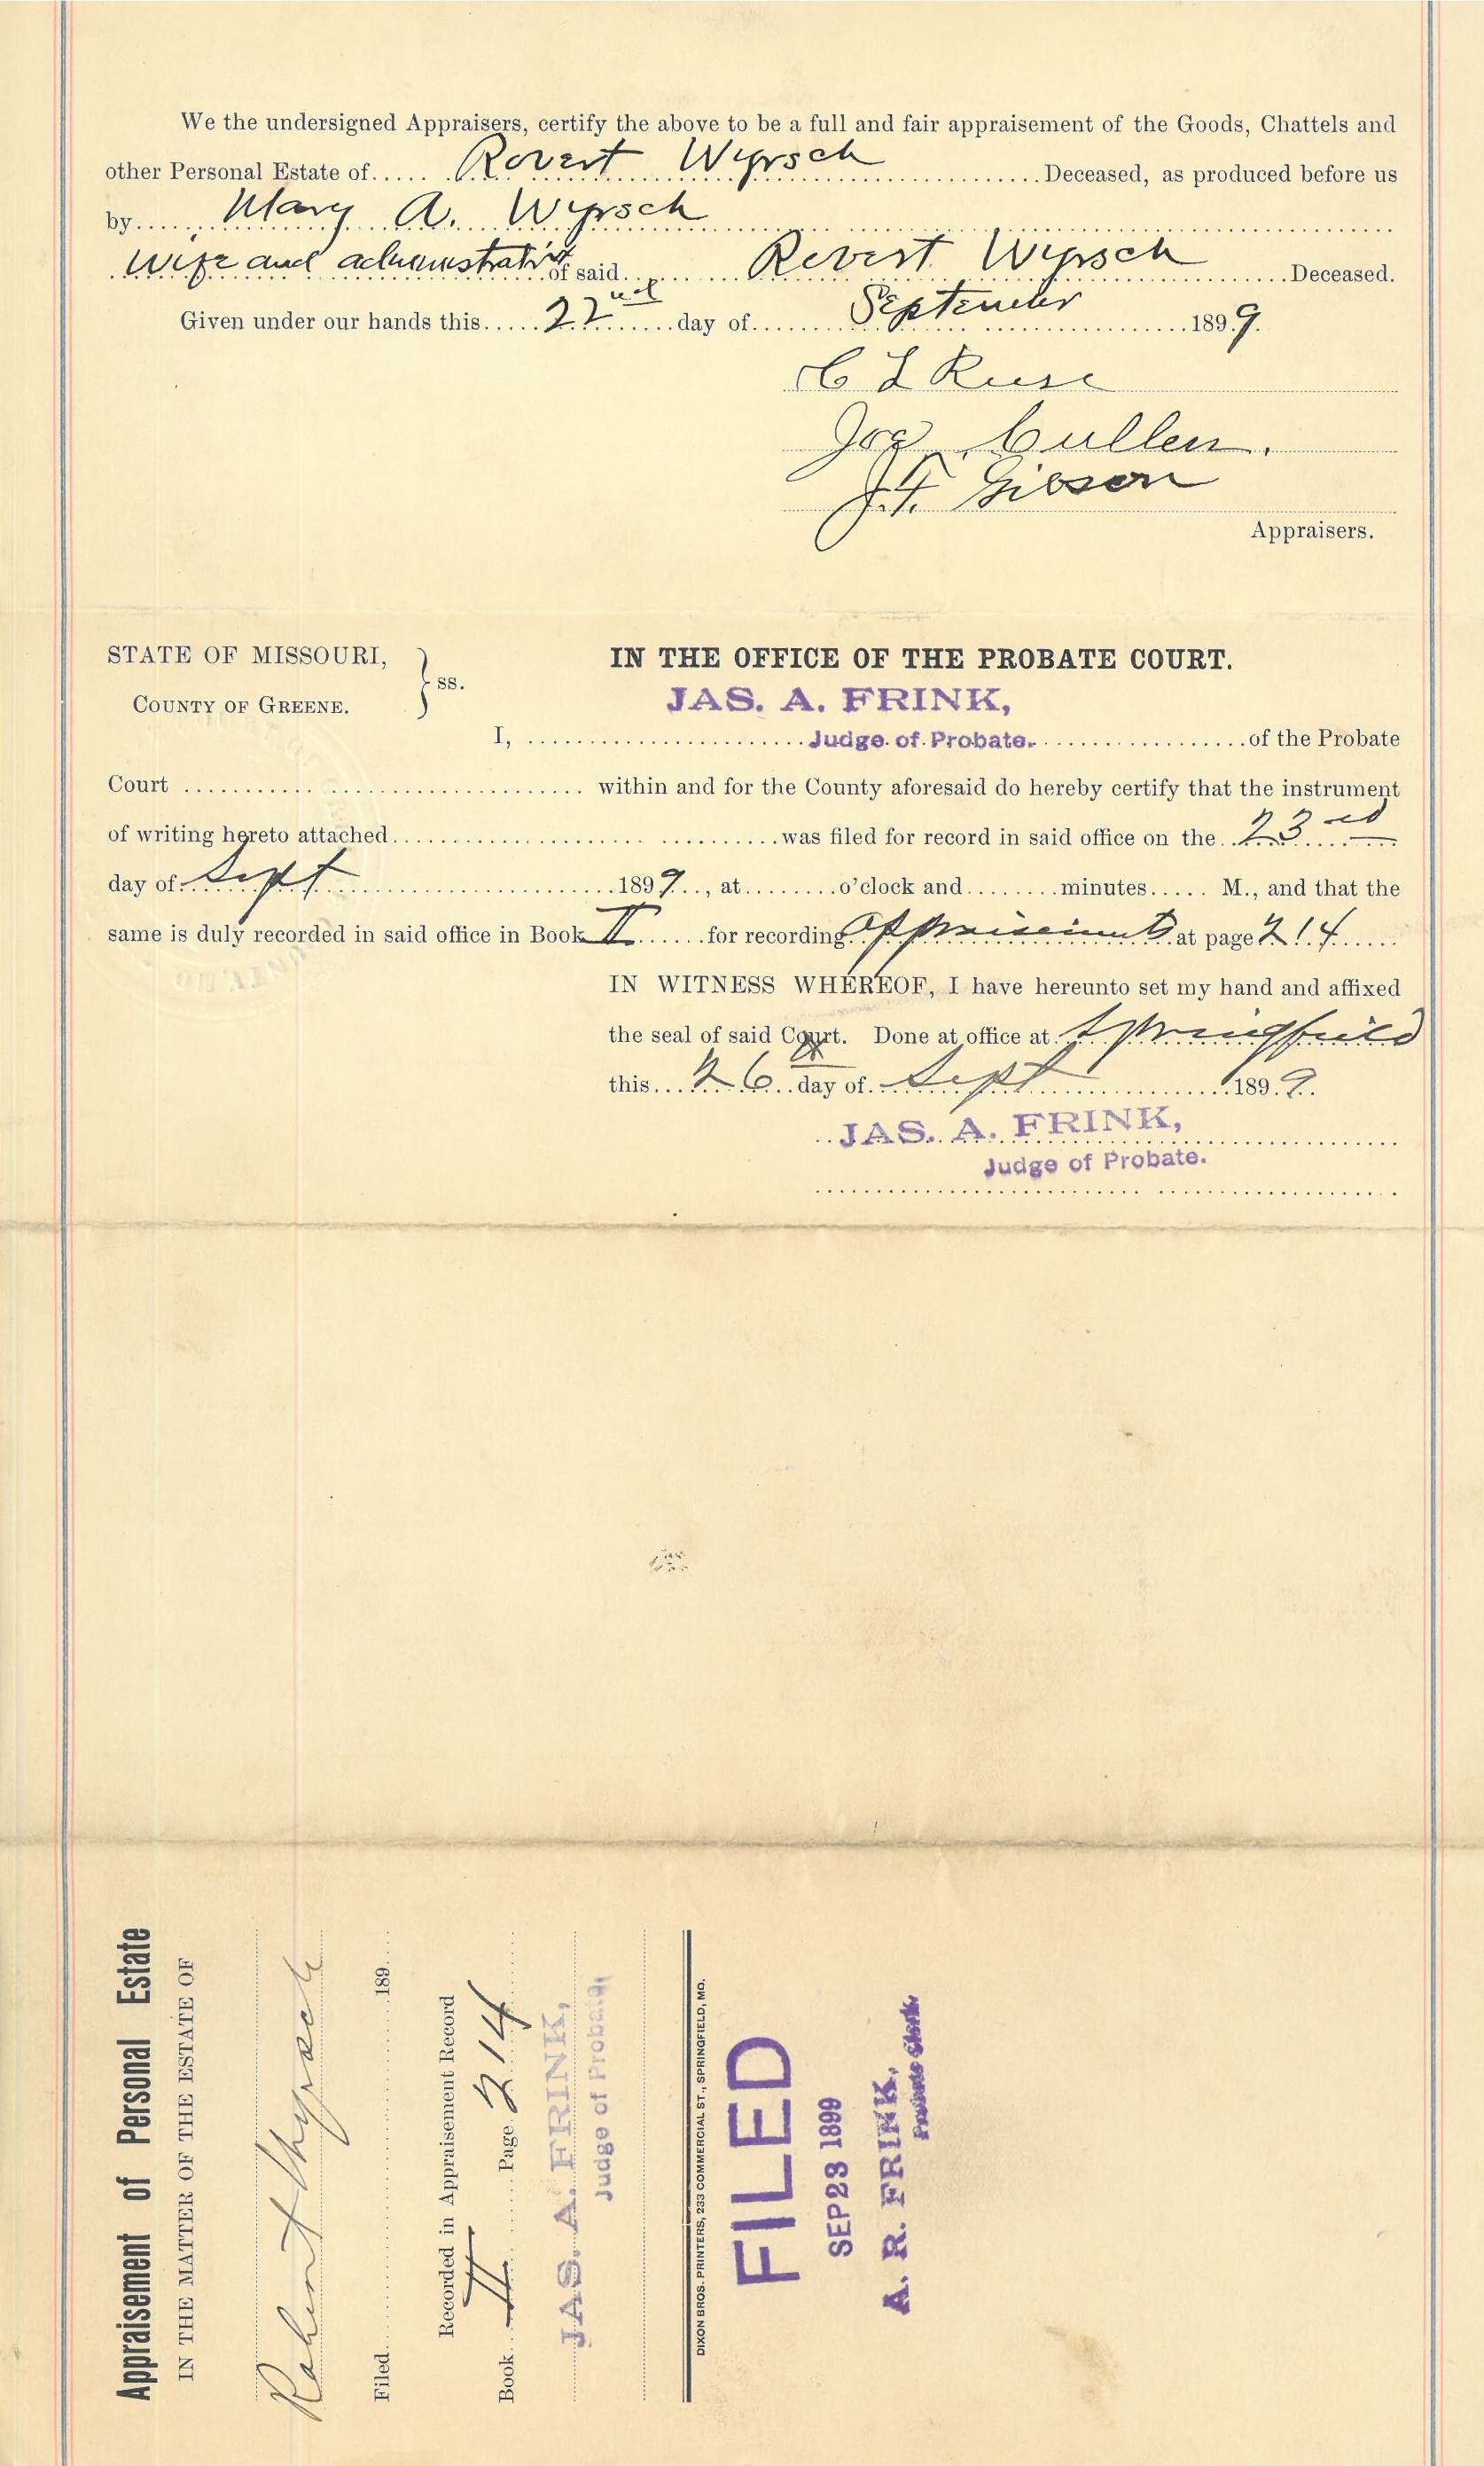 We the undersigned Appraisers, certify the above to be a full and fair appraisement of the Goods, Chattels and
other Personal Estate of..... Robert Wyrsch ..... Deceased, as produced before us
by..... Mary A. Wyrsch
Wife and administratrix of said..... Robert Wyrsch ..... Deceased.
Given under our hands this..... 22nd ..... day of..... September ..... 1899.
C L Ruse
Joe Cullen.
J. F. Gibson
Appraisers.
STATE OF MISSOURI,
COUNTY OF GREENE.
} ss.
IN THE OFFICE OF THE PROBATE COURT.
JAS. A. FRINK,
I, ..... Judge of Probate. ..... of the Probate
Court ..... within and for the County aforesaid do hereby certify that the instrument
of writing hereto attached ..... was filed for record in said office on the 23rd
day of Sept ..... 1899..., at........ o'clock and........ minutes..... M., and that the
same is duly recorded in said office in Book II ..... for recording Appraisements at page 214.....
IN WITNESS WHEREOF, I have hereunto set my hand and affixed
the seal of said Court. Done at office at Springfield
this... 26th day of Sept ..... 1899.
JAS. A. FRINK,
Judge of Probate.
Appraisement of Personal Estate
IN THE MATTER OF THE ESTATE OF
Robert Wyrsch
Filed..... 189...
Recorded in Appraisement Record
Book II ..... Page 214
JAS. A. FRINK,
Judge of Probate,
DIXON BROS. PRINTERS, 233 COMMERCIAL ST., SPRINGFIELD, MO.
FILED
SEP 23 1899
A. R. FRINK,
Probate Clerk.